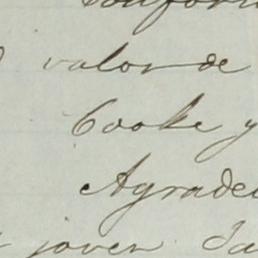 valor de
Cooke y
Agrade
joven